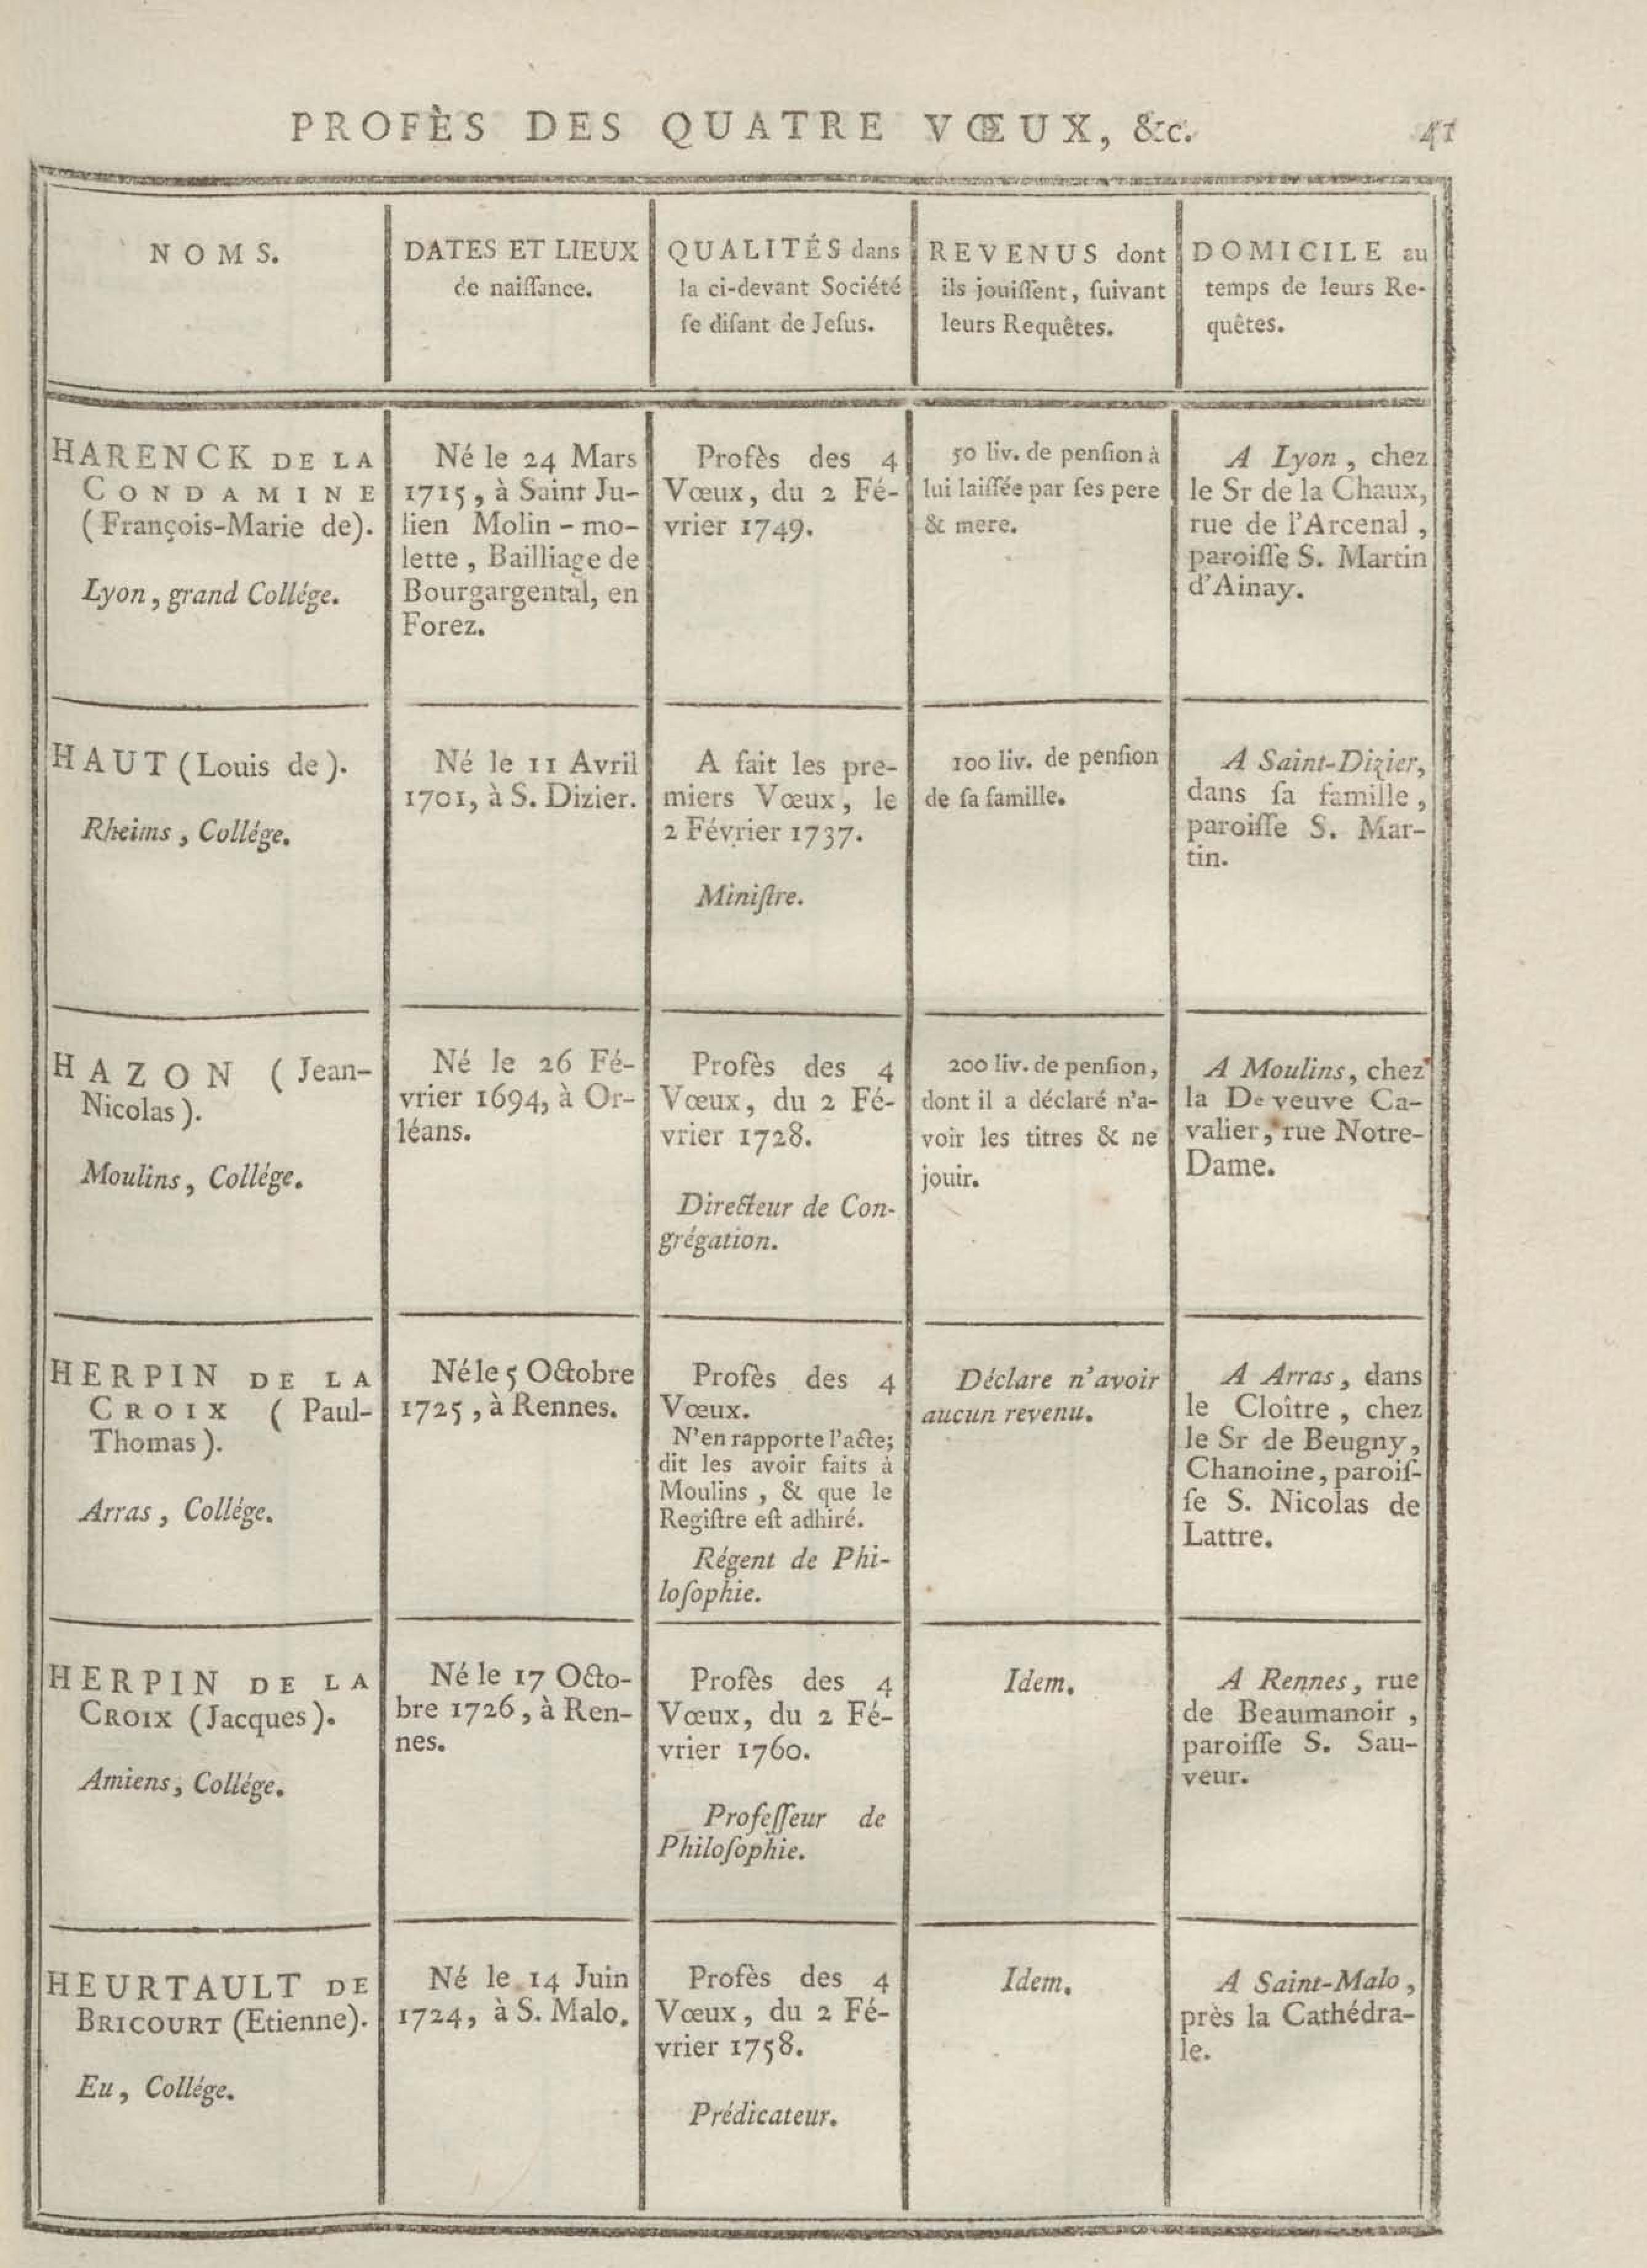 PROFÈS DES QUATRE VŒUX, &c. 41
NOMS.
DATES ET LIEUX
de naiſſance.
QUALITÉS dans
la ci-devant Société
ſe diſant de Jeſus.
REVENUS dont
ils jouiſſent, ſuivant
leurs Requêtes.
DOMICILE au
temps de leurs Re-
quêtes.
HARENCK DE LA
CONDAMINE
(François-Marie de).
Lyon, grand Collége.
Né le 24 Mars
1715, à Saint Ju-
lien Molin-mo-
lette, Bailliage de
Bourgargental, en
Forez.
Profès des 4
Vœux, du 2 Fé-
vrier 1749.
50 liv. de penſion à
lui laiſſée par ſes pere
& mere.
A Lyon, chez
le Sr de la Chaux,
rue de l'Arcenal,
paroiſſe S. Martin
d'Ainay.
HAUT (Louis de).
Rheims, Collége.
Né le 11 Avril
1701, à S. Dizier.
A fait les pre-
miers Vœux, le
2 Février 1737.
Miniſtre.
100 liv. de penſion
de ſa famille.
A Saint-Dizier,
dans ſa famille,
paroiſſe S. Mar-
tin.
HAZON (Jean-
Nicolas).
Moulins, Collége.
Né le 26 Fé-
vrier 1694, à Or-
léans.
Profès des 4
Vœux, du 2 Fé-
vrier 1728.
Directeur de Con-
grégation.
200 liv. de penſion,
dont il a déclaré n'a-
voir les titres & ne
jouir.
A Moulins, chez
la De veuve Ca-
valier, rue Notre-
Dame.
HERPIN DE LA
CROIX (Paul-
Thomas).
Arras, Collége.
Né le 5 Octobre
1725, à Rennes.
Profès des 4
Vœux.
N'en rapporte l'acte;
dit les avoir faits à
Moulins, & que le
Regiſtre eſt adhiré.
Régent de Phi-
loſophie.
Déclare n'avoir
aucun revenu.
A Arras, dans
le Cloître, chez
le Sr de Beugny,
Chanoine, paroiſ-
ſe S. Nicolas de
Lattre.
HERPIN DE LA
CROIX (Jacques).
Amiens, Collége.
Né le 17 Octo-
bre 1726, à Ren-
nes.
Profès des 4
Vœux, du 2 Fé-
vrier 1760.
Profeſſeur de
Philoſophie.
Idem.
A Rennes, rue
de Beaumanoir,
paroiſſe S. Sau-
veur.
HEURTAULT DE
BRICOURT (Etienne).
Eu, Collége.
Né le 14 Juin
1724, à S. Malo.
Profès des 4
Vœux, du 2 Fé-
vrier 1758.
Prédicateur.
Idem.
A Saint-Malo,
près la Cathédra-
le.